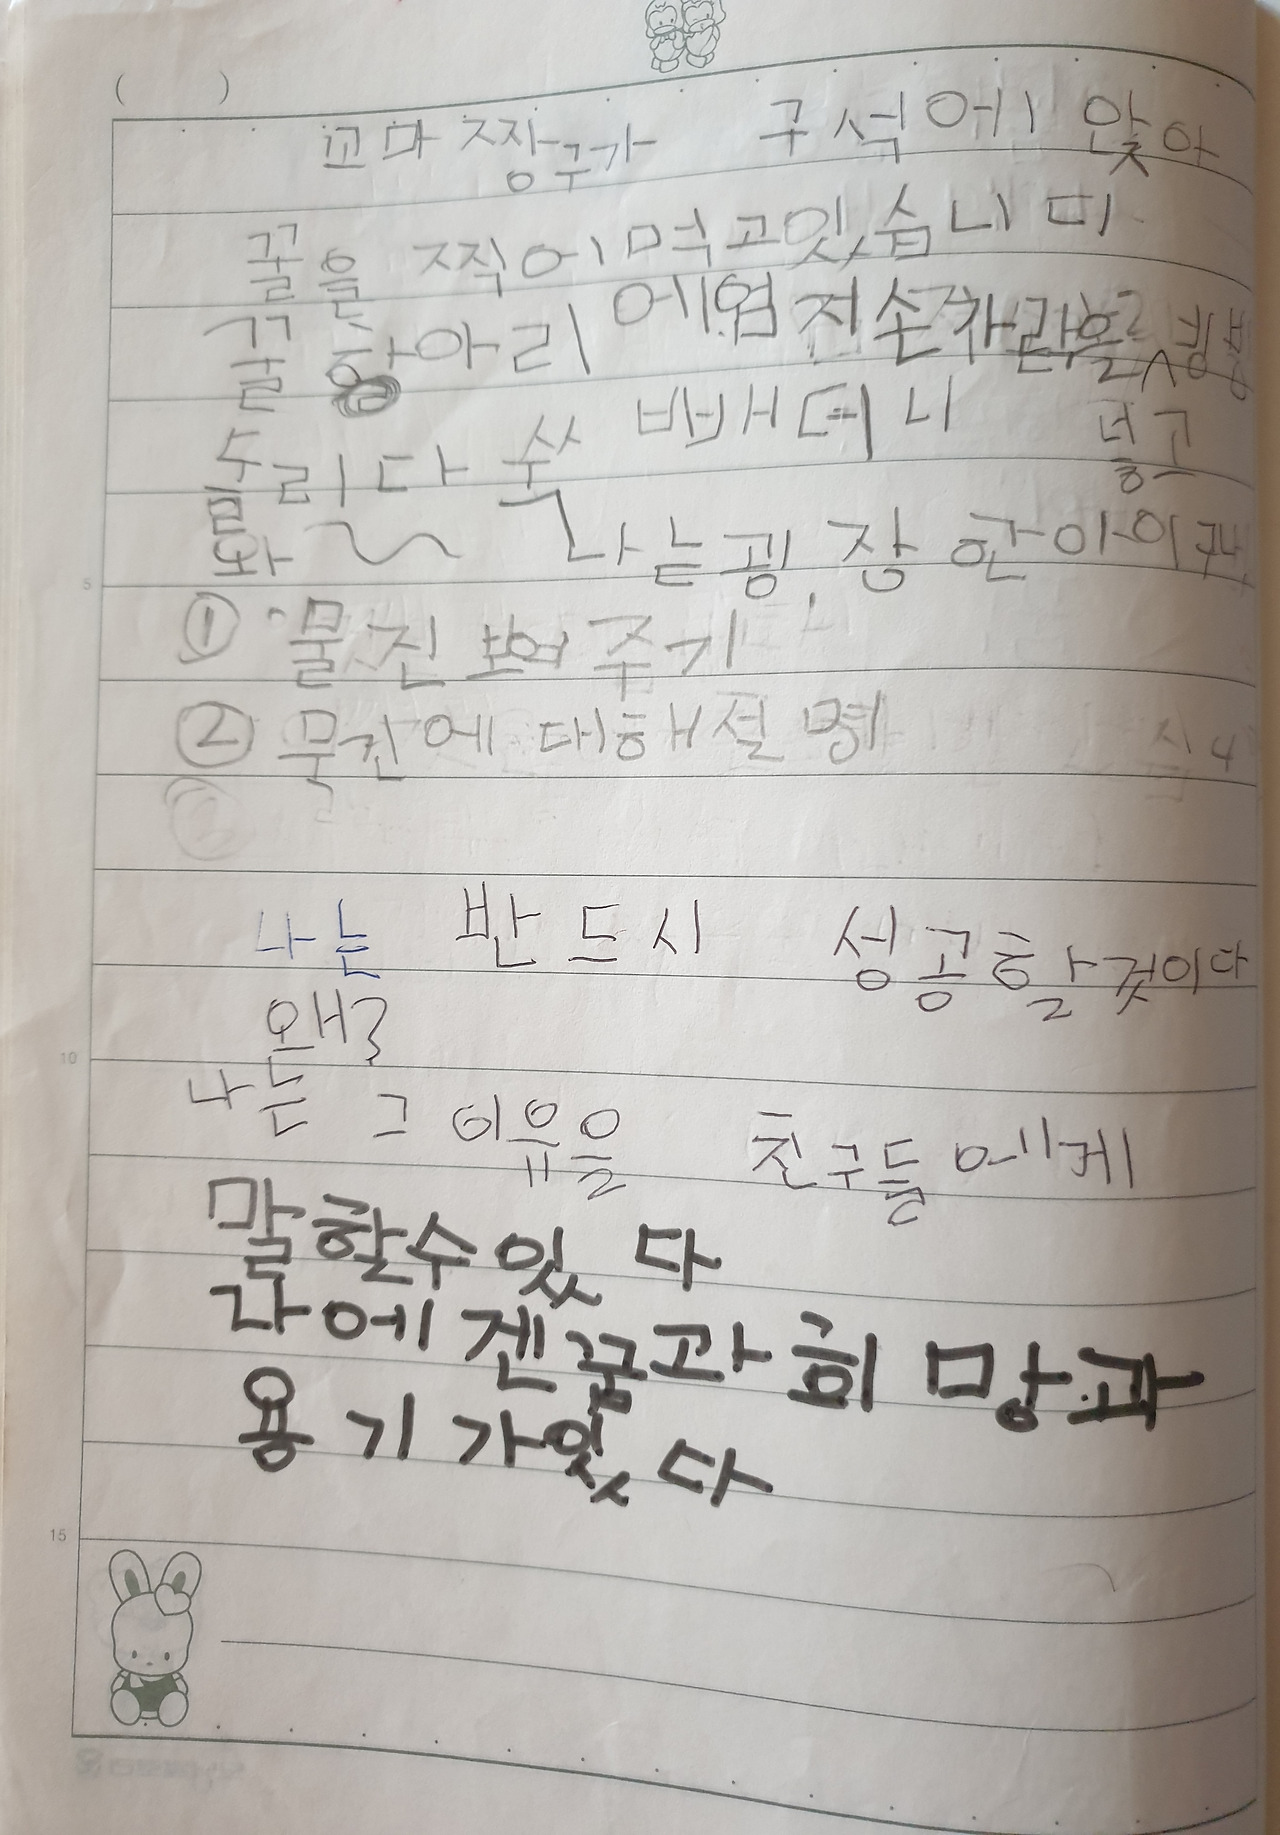 꼬마 짱구가 구석에 앉아
꿀을 찍어 먹고있습니다
꿀항아리에 엄지손가락을
다 쑥 빼더니 넣고
나는 굉장한아이
① 물건 보여주기
② 물건에 대해 설명
나는 반드시 성공할것이다
왜?
나는 그 이유을 친구들에게
말할수 있다
나에겐 꿈과 희망과
용기가있다
5
10
15